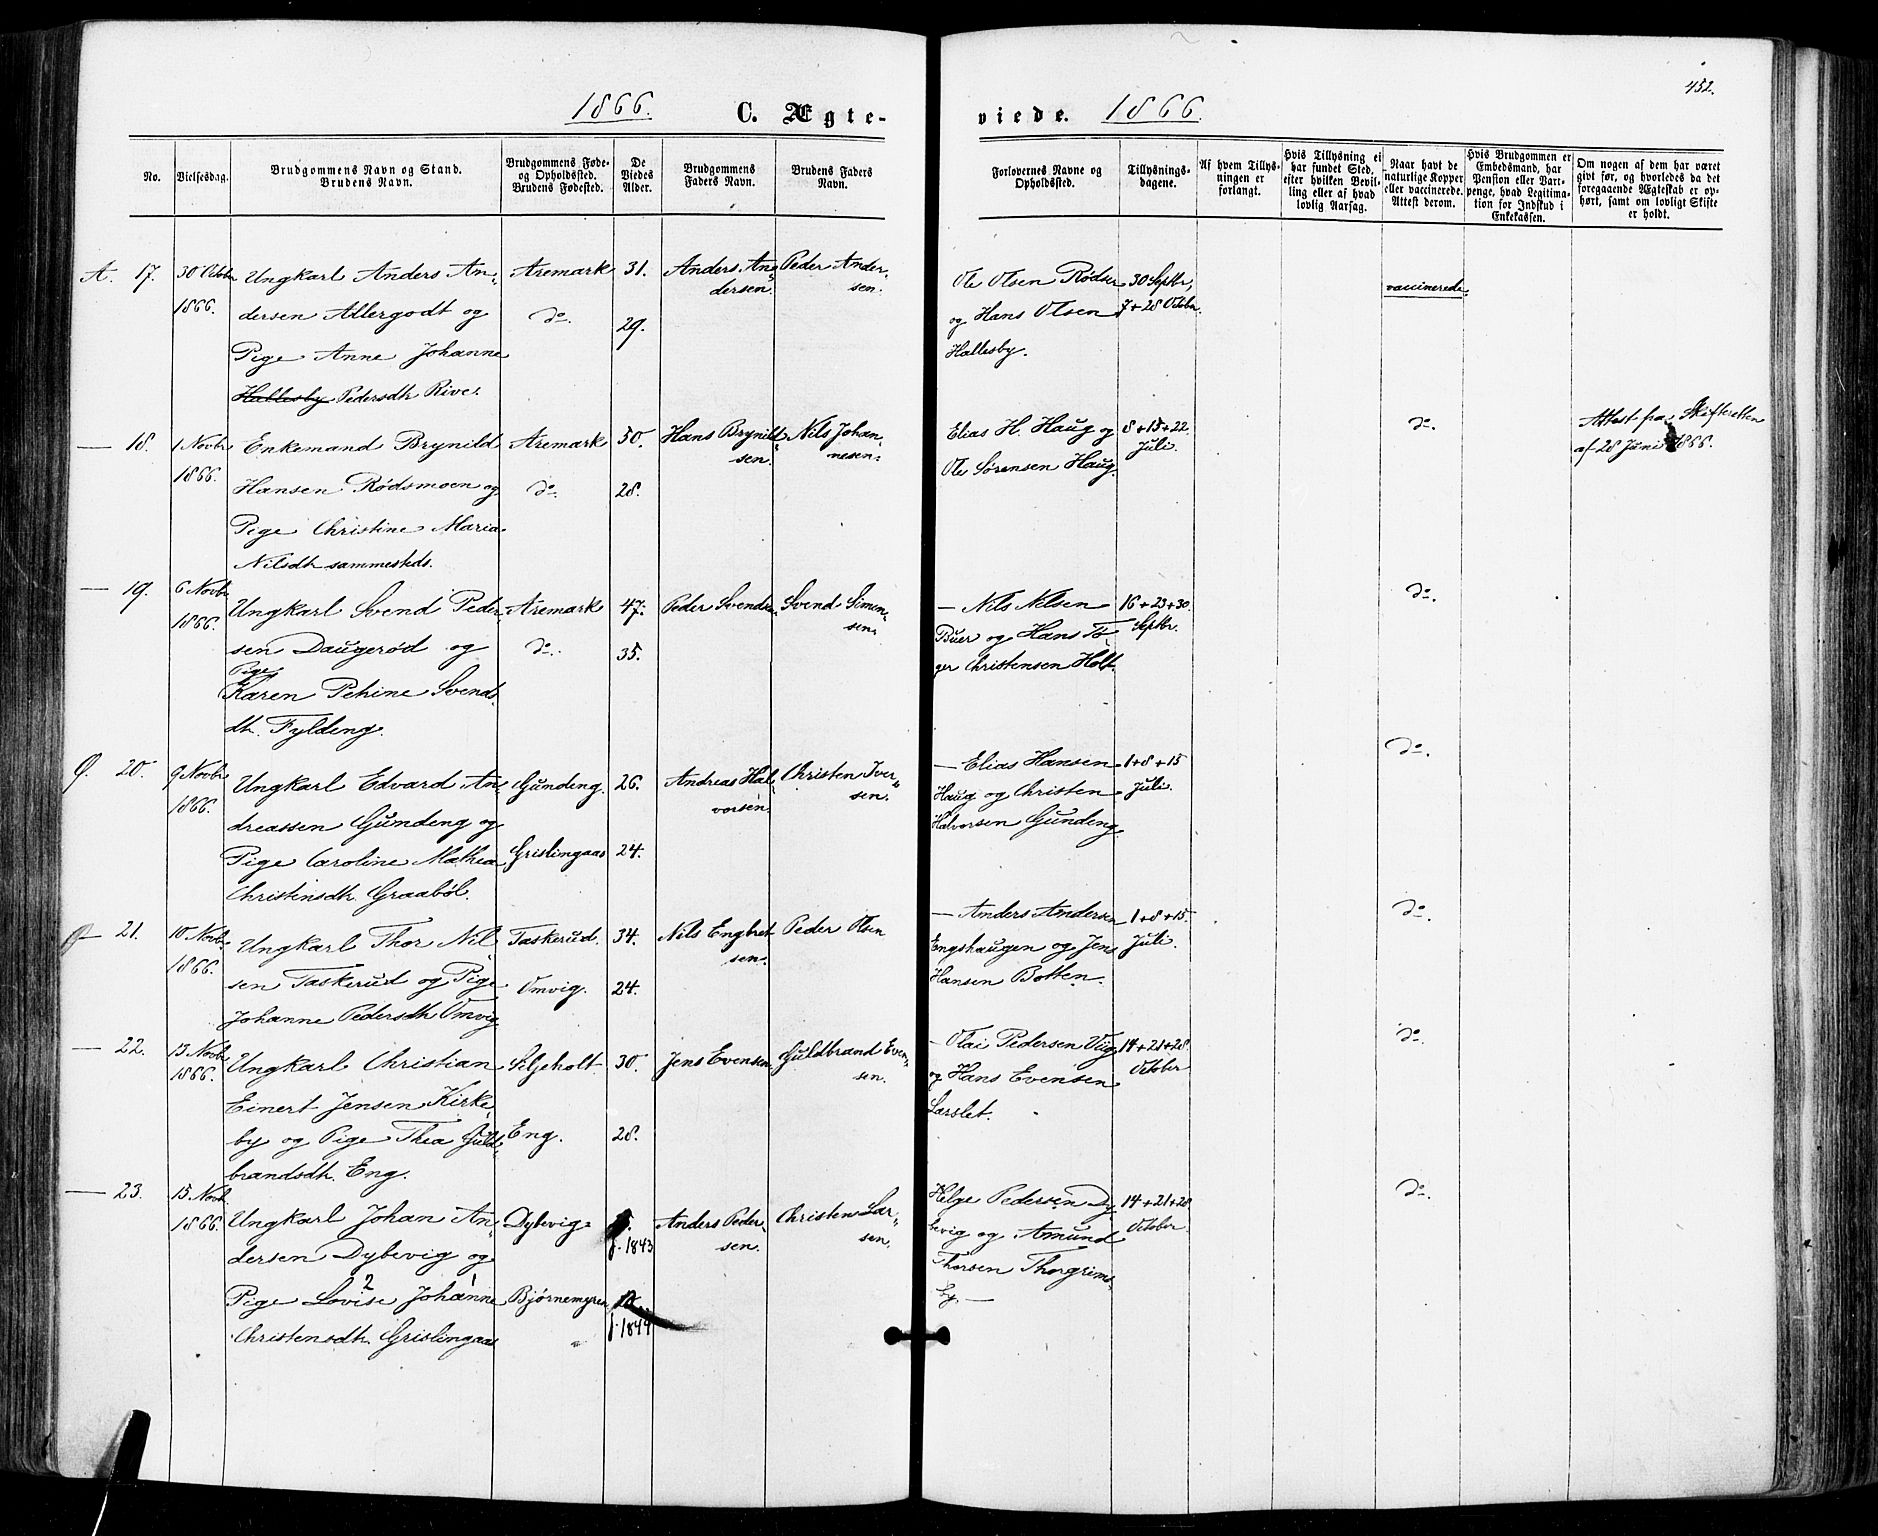 452.
1866. C. Ægte-
viede. 1866.
No.
Vielsesdag.
Brudgommens Navn og Stand.
Brudens Navn.
Brudgommens Føde-
og Opholdssted.
Brudens Fødested.
De
Viedes
Alder.
Brudgommens
Faders Navn.
Brudens Faders
Navn.
Forlovernes Navne og
Opholdssted.
Tillysnings-
dagene.
Af hvem Tillys-
ningen er
forlangt.
Hvis Tillysning ei
har fundet Sted,
efter hvilken Bevil-
ling eller af hvad
lovlig Aarsag.
Naar havt de
naturlige Kopper
eller vaccinerede.
Attest derom.
Hvis Brudgommen er
Embedsmand, har
Pension eller Vart-
penge, hvad Legitima-
tion for Indskud i
Enkekassen.
Om nogen af dem har været
givt før, og hvorledes da det
foregaaende Ægteskab er op-
hørt, samt om lovligt Skifte
er holdt.
A. 17.
30 Octbr
1866.
Ungkarl Anders An-
dersen Allergodt og
Pige Anne Johanne
Hallesby Pedersdh Rive.
Aremark
do.
31.
29.
Anders An-
dersen.
Peder Ander-
sen.
Ole Olsen Rødsæ
og Hans Olsen
Hallesby.
30 Septbr,
7 + 28 Octobr.
vaccinerede.
— 18.
1 Novbr
1866.
Enkemand Brynild
Hansen Rødsmoen og
Pige Christine Maria
Nilsdh sammesteds.
Aremark
do.
50.
28.
Hans Brynild-
sen.
Nils Johan-
nesen.
Elias H. Haug og
Ole Sørensen Haug.
8 + 15 + 22.
Juli.
do.
Attest fra Skifteretten
af 28 Juni 1866.
— 19.
6 Novbr
1866.
Ungkarl Svend Peder-
sen Daugerød og
Pige
Karen Petrine Svends-
dh. Fyldeng.
Aremark
do.
47.
35.
Peder Svends.
Svend Simen-
sen.
— Nils Nilsen
Buer og Hans Tø-
ger Christensen Holt.
16 + 23 + 30.
Septbr.
do.
Ø. 20.
9 Novbr
1866.
Ungkarl Edvard An-
dreassen Gundeng og
Pige Caroline Mathea
Christensdh. Graabøl.
Gundeng.
Grislingaas
26.
24.
Andreas Hal-
vorsen.
Christen Iver-
sen.
— Elias Hansen
Haug og Christen
Halvorsen Gundeng.
1 + 8 + 15
Juli.
do.
Ø 21.
10 Novbr.
1866.
Ungkarl Thor Nil-
sen Taskerud og Pige
Johanne Pedersdh Omvig
Taskerud.
Omvig.
34.
24.
Nils Engbret-
sen.
Peder Olsen
— Anders Andersen
Engshaugen og Jens
Hansen Botten.
1 + 8 + 15.
Juli.
do.
— 22.
13 Novbr
1866.
Ungkarl Christian
Einert Jensen Kirke-
by og Pige Thea Guld-
brandsdh. Eng.
Seljeholt.
Eng.
30.
28.
Jens Evensen
Guldbrand Even-
sen.
— Olai Pedersen Viig
og Hans Evensen
Larslet.
14 + 21 + 28.
October
do.
— 23.
15 Novbr.
1866.
Ungkarl Johan An-
dersen Dybevig og
2 1
Pige Lovise Johanne
Christensdh. Grislingaas
Dybevig
Bjørnemyren
f. 1843
f. 1844
Anders Peder-
sen.
Christen Lar-
sen.
Helge Pedersen Dy-
bevig og Amund
Thorsen Thorgrims-
by. —
14 + 21 + 28
October
do.